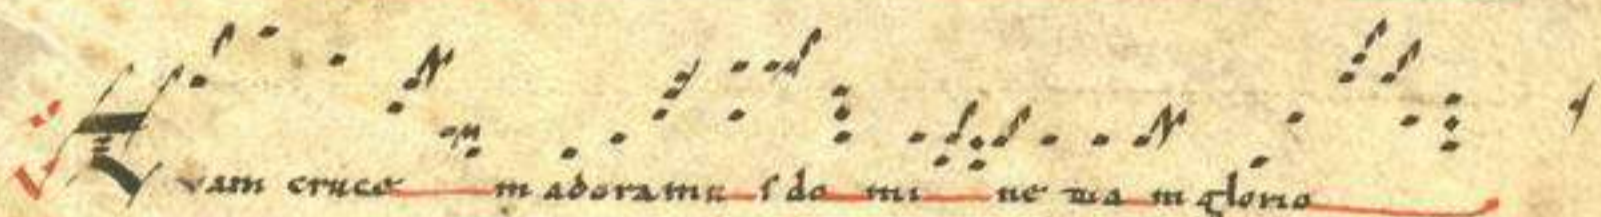 Tuam cruce m adoramu s do mi ne tua m glorio